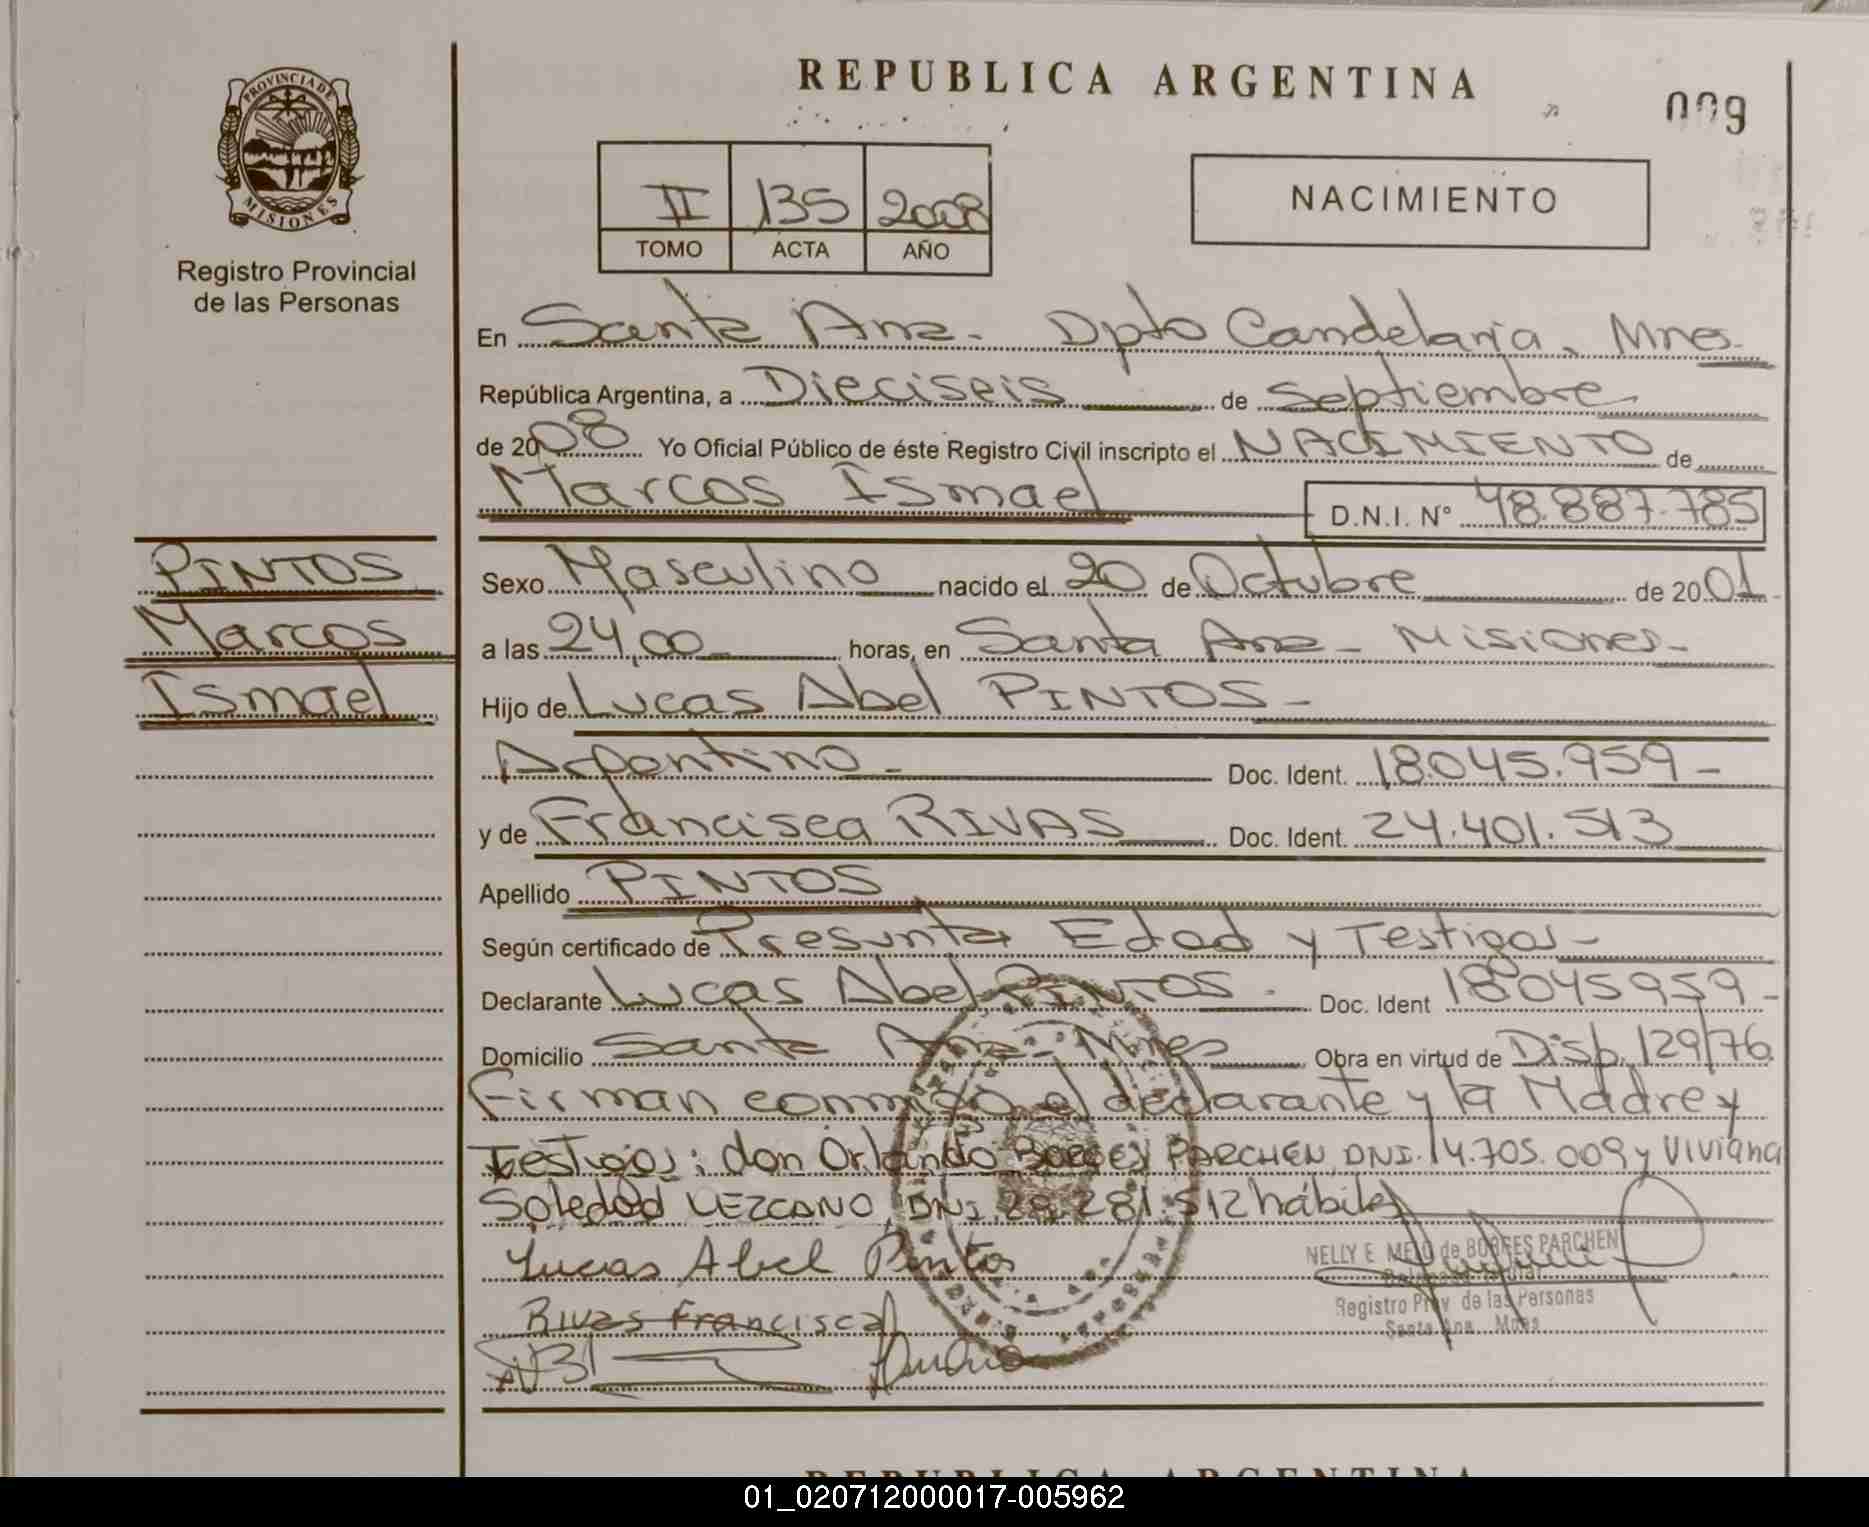 PROVINCIA DE
MISIONES
Registro Provincial
de las Personas
REPUBLICA ARGENTINA
009
II 135 2008
TOMO ACTA AÑO
NACIMIENTO
En Santa Ana - Dpto Candelaria, Mnes.
República Argentina, a Dieciseis de Septiembre
de 2008 Yo Oficial Público de éste Registro Civil inscripto el NACIMIENTO de
Marcos Ismael D.N.I. N° 48.887.785
PINTOS
Marcos
Ismael
Sexo Masculino nacido el 20 de Octubre de 2001
a las 24,00 horas, en Santa Ana - Misiones -
Hijo de Lucas Abel PINTOS -
Argentino - Doc. Ident. 18.045.959 -
y de Francisca RIVAS Doc. Ident. 24.401.513
Apellido PINTOS
Según certificado de Presunta Edad y Testigos -
Declarante Lucas Abel PINTOS - Doc. Ident 18045959 -
Domicilio Santa Ana - Mnes Obra en virtud de Disp. 129/76
Firman conmigo el declarante y la Madre y
Testigos: don Orlando BORGES PARCHEN, DNI. 14.705.009 y Viviana
Soledad LEZCANO, DNI. 28.281.512 hábiles
Lucas Abel Pintos
NELLY E. MELO de BORGES PARCHEN
Registro Prov. de las Personas
Santa Ana - Mnes
Rivas Francisca
REPUBLICA ARGENTINA
01_020712000017-005962